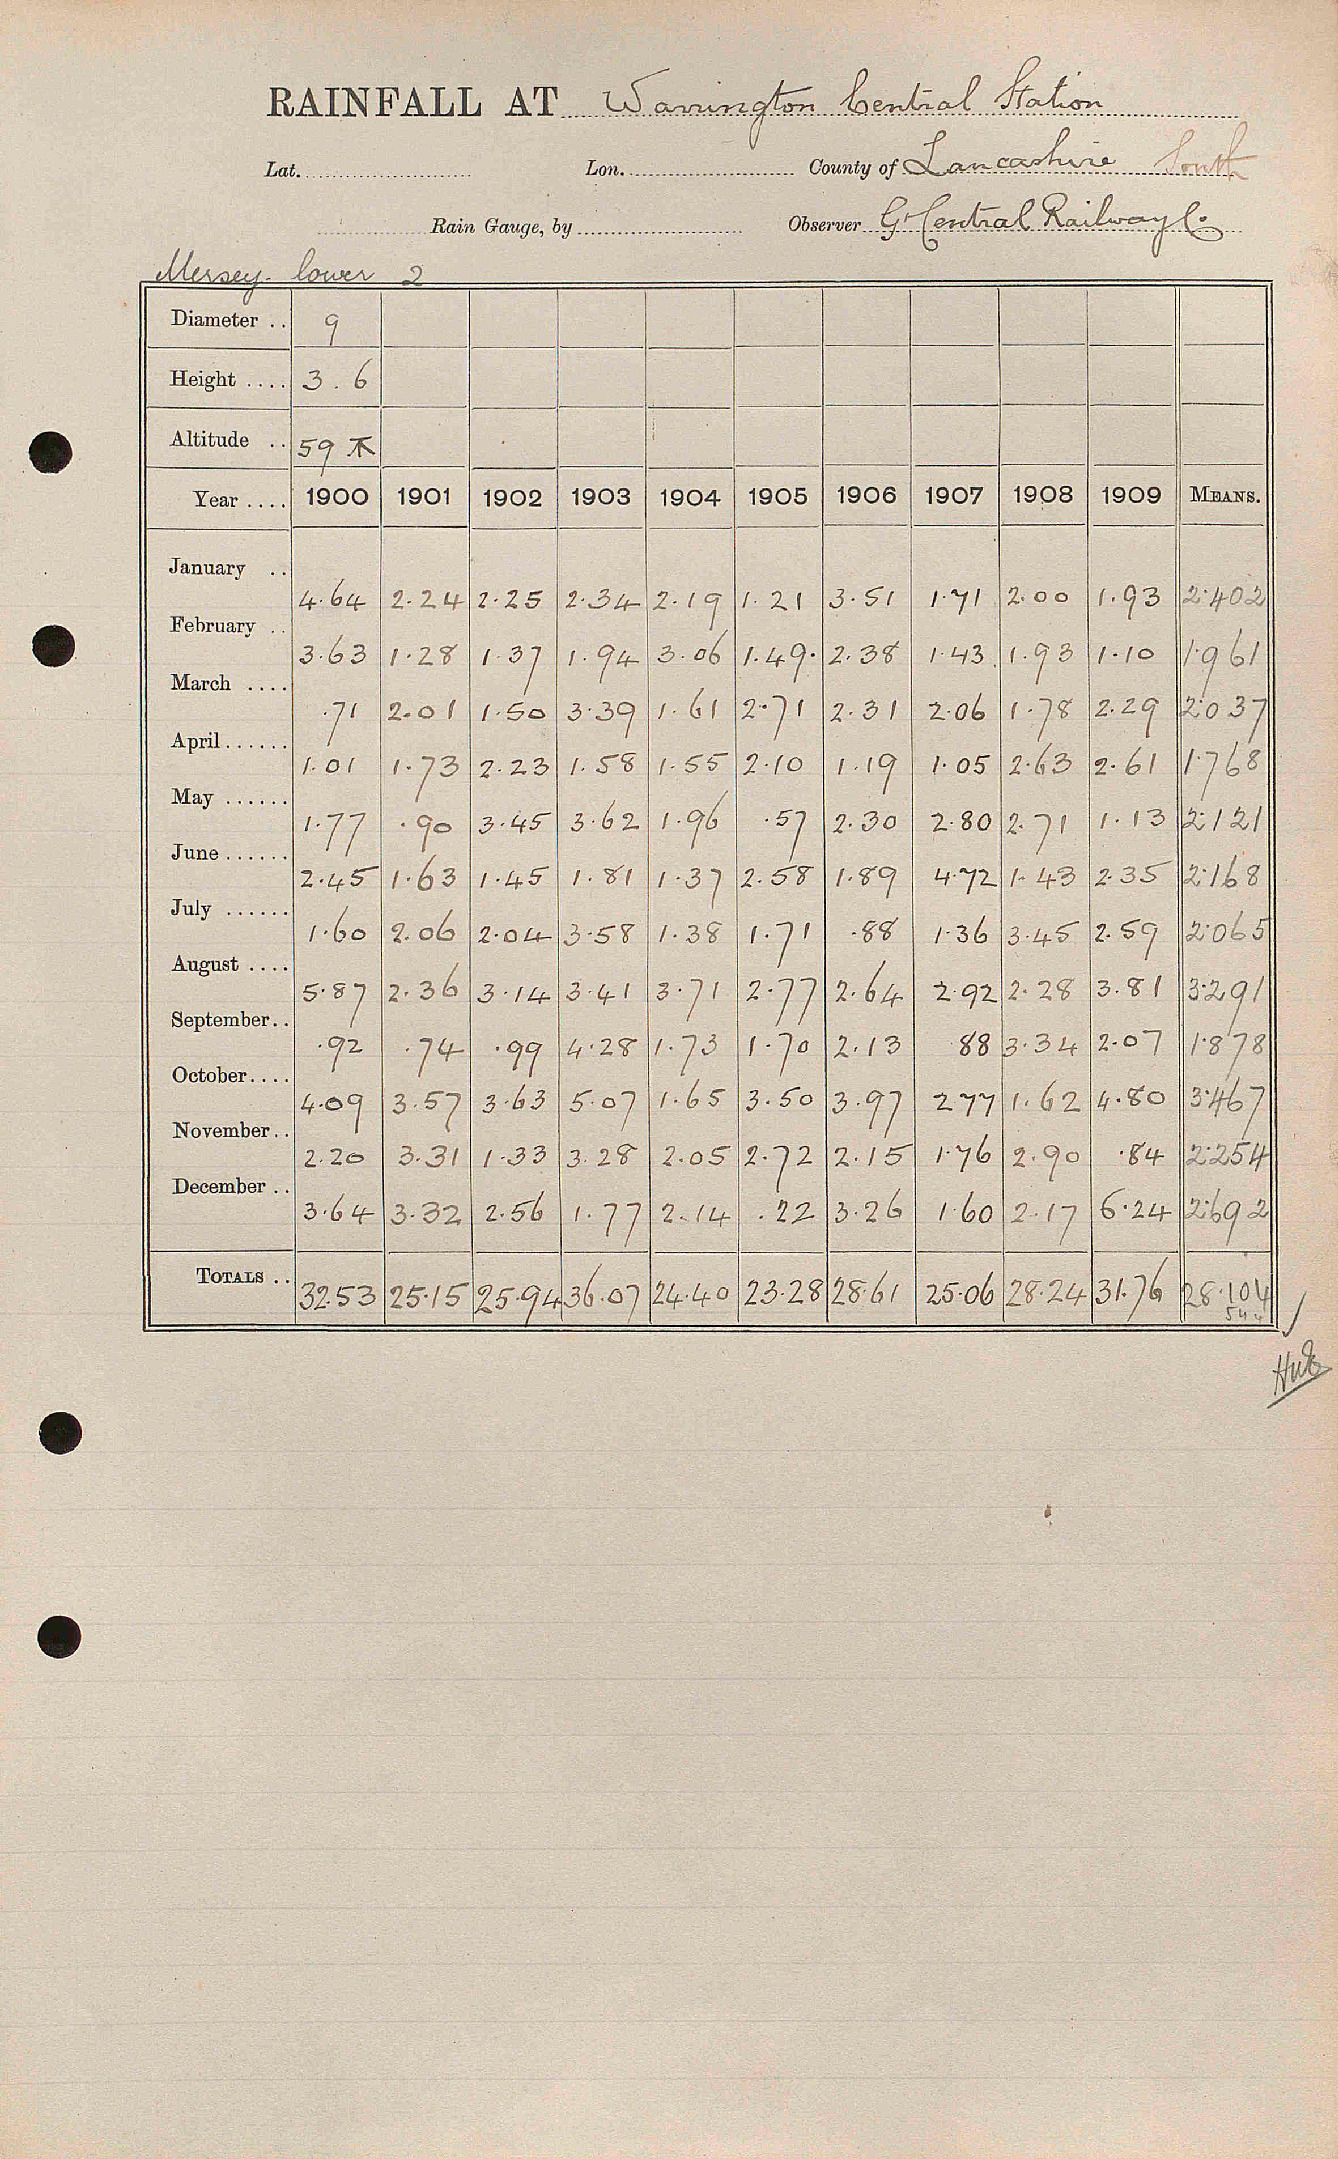 RAINFALL AT Warrington Central Station
Lat. Lon. County of Lancashire South
Rain Gauge, by Observer Gt Central Railway Co.
Mersey lower 2
Diameter .. 9
Height .... 3.6
Altitude .. 59
Year .... 1900 1901 1902 1903 1904 1905 1906 1907 1908 1909 MEANS.
January .. 4.64 2.24 2.25 2.34 2.19 1.21 3.51 1.71 2.00 1.93 2.402
February .. 3.63 1.28 1.37 1.94 3.06 1.49. 2.38 1.43 1.93 1.10 1.961
March .... .71 2.01 1.50 3.39 1.61 2.71 2.31 2.06 1.78 2.29 2.037
April...... 1.01 1.73 2.23 1.58 1.55 2.10 1.19 1.05 2.63 2.61 1.768
May ...... 1.77 .90 3.45 3.62 1.96 .57 2.30 2.80 2.71 1.13 2.121
June...... 2.45 1.63 1.45 1.81 1.37 2.58 1.89 4.72 1.43 2.35 2.168
July ...... 1.60 2.06 2.04 3.58 1.38 1.71 .88 1.36 3.45 2.59 2.065
August .... 5.87 2.36 3.14 3.41 3.71 2.77 2.64 2.92 2.28 3.81 3.291
September.. .92 .74 .99 4.28 1.73 1.70 2.13 88 3.34 2.07 1.878
October.... 4.09 3.57 3.63 5.07 1.65 3.50 3.97 2.77 1.62 4.80 3.467
November.. 2.20 3.31 1.33 3.28 2.05 2.72 2.15 1.76 2.90 .84 2.254
December .. 3.64 3.32 2.56 1.77 2.14 .22 3.26 1.60 2.17 6.24 2.692
TOTALS .. 32.53 25.15 25.94 36.07 24.40 23.28 28.61 25.06 28.24 31.76 28.104